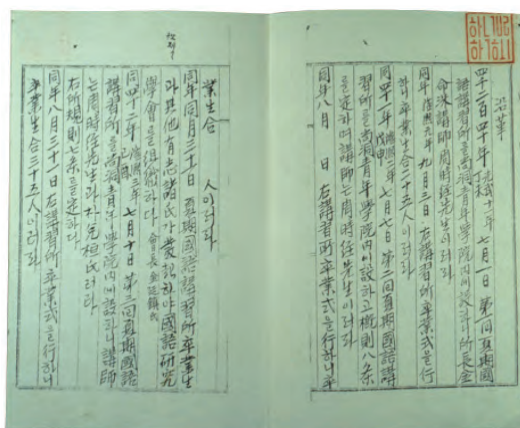 沿革
四千二百四十年 丁未 光武十一年 七月一日 第一回夏期國
語講習所를尙洞青年學院內에設하니所長金
命洙講師周時經先生이러라
同年 隆熙元年 九月三日 右講習所卒業式을行
하니卒業生合二十五人이러라
同四十一年 戊申 隆熙二年 七月七日 第二回夏期國語講
習所를尙洞青年學院內에設하고概則八条
를定하며講師는周時經先生이러라
同年八月 日 右講習所卒業式을行하니卒
業生合 人이러라
同年同月三十一日 夏期國語講習所卒業生
과其他有志諸氏가發起하야國語研究
學會를組織하다 會長 金廷鎭氏
同四十二年 己酉 隆熙三年 七月十日 第三回夏期國語
講習所를尙洞青年學院內에設하니講師
는周時經先生과 朴兌桓氏러라
右所規則七条를定하다
同年八月三十一日 右講習所卒業式을行하니
卒業生合三十五人이러라